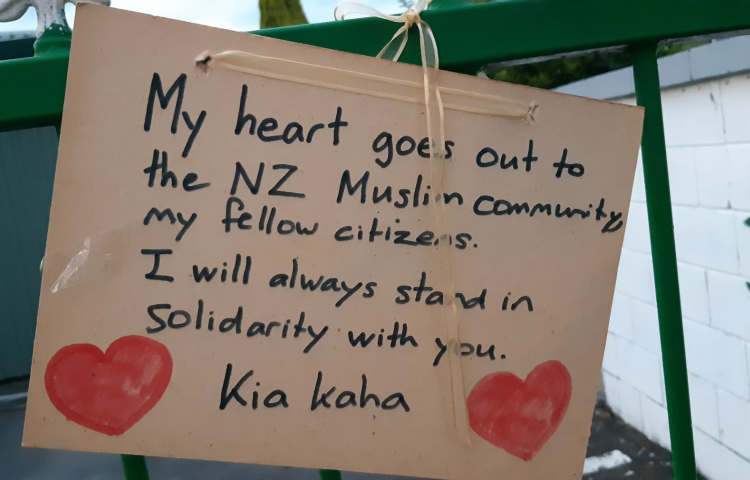 My heart goes out to
the NZ Muslim community,
my fellow citizens.
I will always stand in
solidarity with you.
Kia kaha